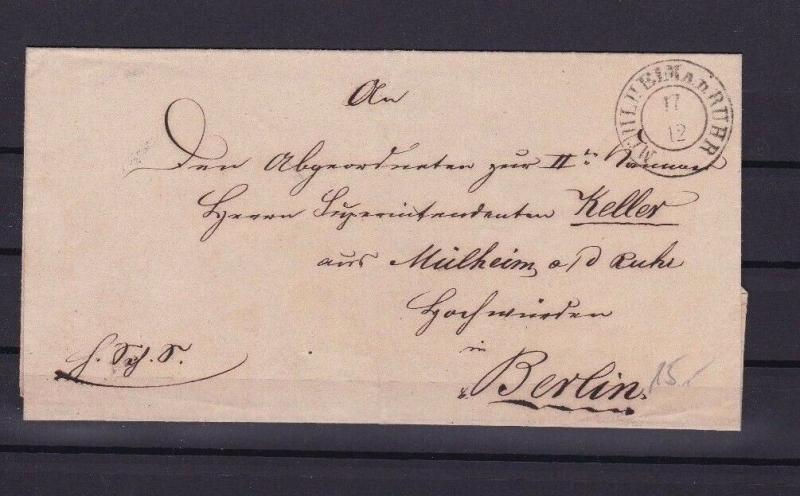 An
MÜHLHEIM A.D. RUHR
17
12
Den Abgeordneten zur IIten Kammer
Herrn Superintendenten Keller
aus Mülheim a/d Ruhr
Hochwürden
in
Berlin.
15.-
H. Sch. S.